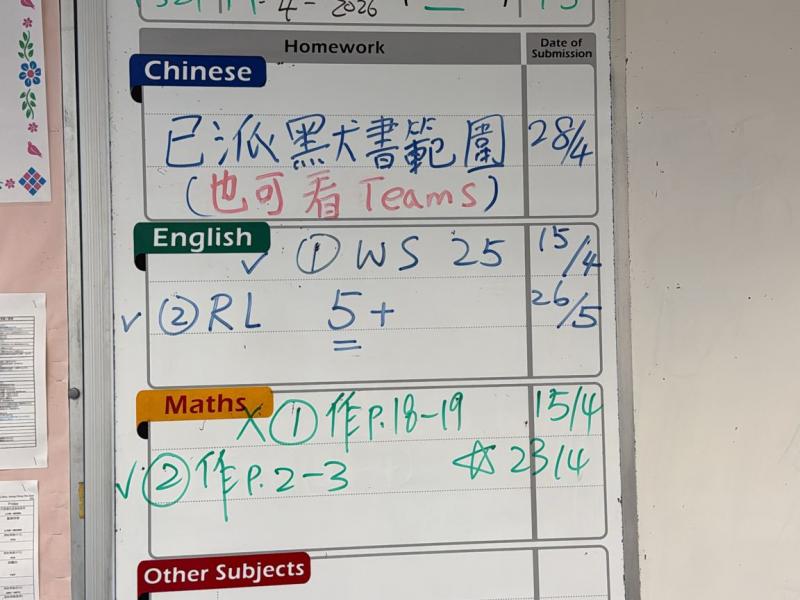 4 - 2026
Homework
Date of Submission
Chinese
已派默書範圍 28/4
(也可看Teams)
English
✓ ① WS 25 15/4
✓ ② RL 5+ 26/5
Maths
X ① 作P.18-19 15/4
✓ ② 作P.2-3 ☆ 23/4
Other Subjects